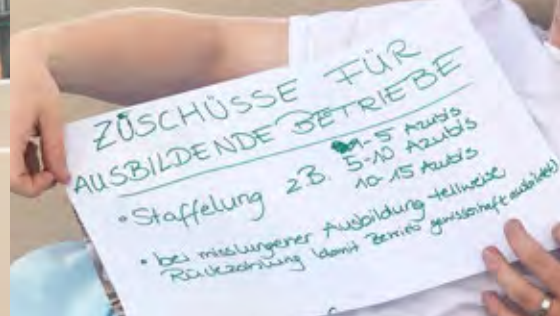 ZUSCHÜSSE FÜR
AUSBILDENDE BETRIEBE
• Staffelung z.B. 1-5 Azubis
5-10 Azubis
10-15 Azubis
• bei misslungener Ausbildung teilweise
Rückzahlung (damit Betrieb gewissenhaft ausbildet)